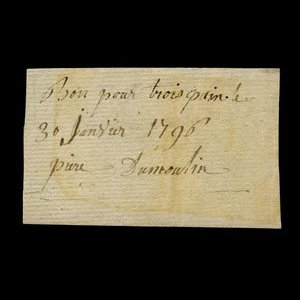 Bon pour trois pain à
30 Janvier 1796
pière Dumoulin